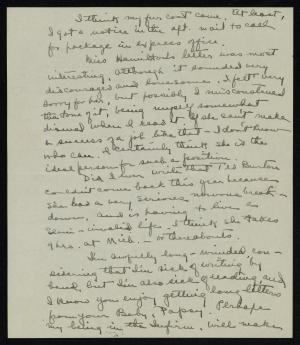 I think my fur coat came. At least,
I got a notice in the aft. mail to call
for package in express office.
Miss Hamilton's letter was most
interesting, although it sounded very
discouraged and lonesome. I felt very
sorry for her, but possibly I misconstrued
the tone of it, being myself somewhat
dismal when I read it. If she can't make
a success of a job like that – I don't know
who can. I certainly think she is the
ideal person for such a position.
Did I ever write that I'll Burton
couldn't come back this year because
she had a very serious nervous break-
down, and is having to live a
semi-invalid life. I think she takes
9 hrs. at Mich. – or thereabouts.
I'm awfully long-winded con-
sidering that I'm sick of writing by
hand, but I'm also sick of reading, and
I know you enjoy getting long letters
from your Baby, Papsy. Perhaps
my being in the Infirm. will make